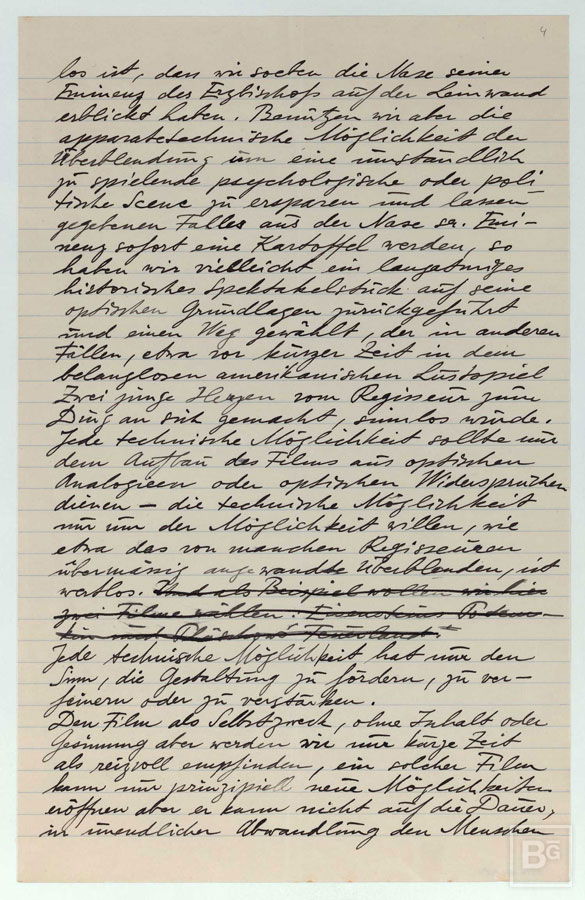 4
los ist, dass wir soeben die Nase seiner
Eminenz des Erzbischofs auf der Leinwand
erblickt haben. Benützen wir aber die
apparatetechnische Möglichkeit der
Überblendung um eine umständlich
zu spielende psychologische oder poli
tische Scene zu ersparen und lassen
gegebenen Falles aus der Nase sr. Emi-
nenz sofort eine Kartoffel werden, so
haben wir vielleicht ein langatmiges
historisches Spektakelstück auf seine
optischen Grundlagen zurückgeführt
und einen Weg gewählt, der in anderen
Fällen, etwa vor kurzer Zeit in dem
belanglosen amerikanischen Lustspiel
Zwei junge Herzen vom Regisseur zum
Ding an sich gemacht, sinnlos wurde.
Jede technische Möglichkeit sollte nur
dem Aufbau des Films aus optischen
Analogieen oder optischen Widersprüchen
dienen – die technische Möglichkeit
nur um der Möglichkeit willen, wie
etwa das von manchen Regisseuren
übermässig angewandte Überblenden, ist
wertlos. Und als Beispiel wollen wir hier
zwei Filme wählen. Eisensteins Potem-
kin und Plüschows Feuerland.
Jede technische Möglichkeit hat nur den
Sinn, die Gestaltung zu fördern, zu ver-
feinern oder zu verstärken.
Den Film als Selbstzweck, ohne Inhalt oder
Gesinnung aber werden wir nur kurze Zeit
als reizvoll empfinden, ein solcher Film
kann nur prinzipiell neue Möglichkeiten
eröffnen aber er kann nicht auf die Dauer,
in unendlicher Abwandlung den Menschen
BG